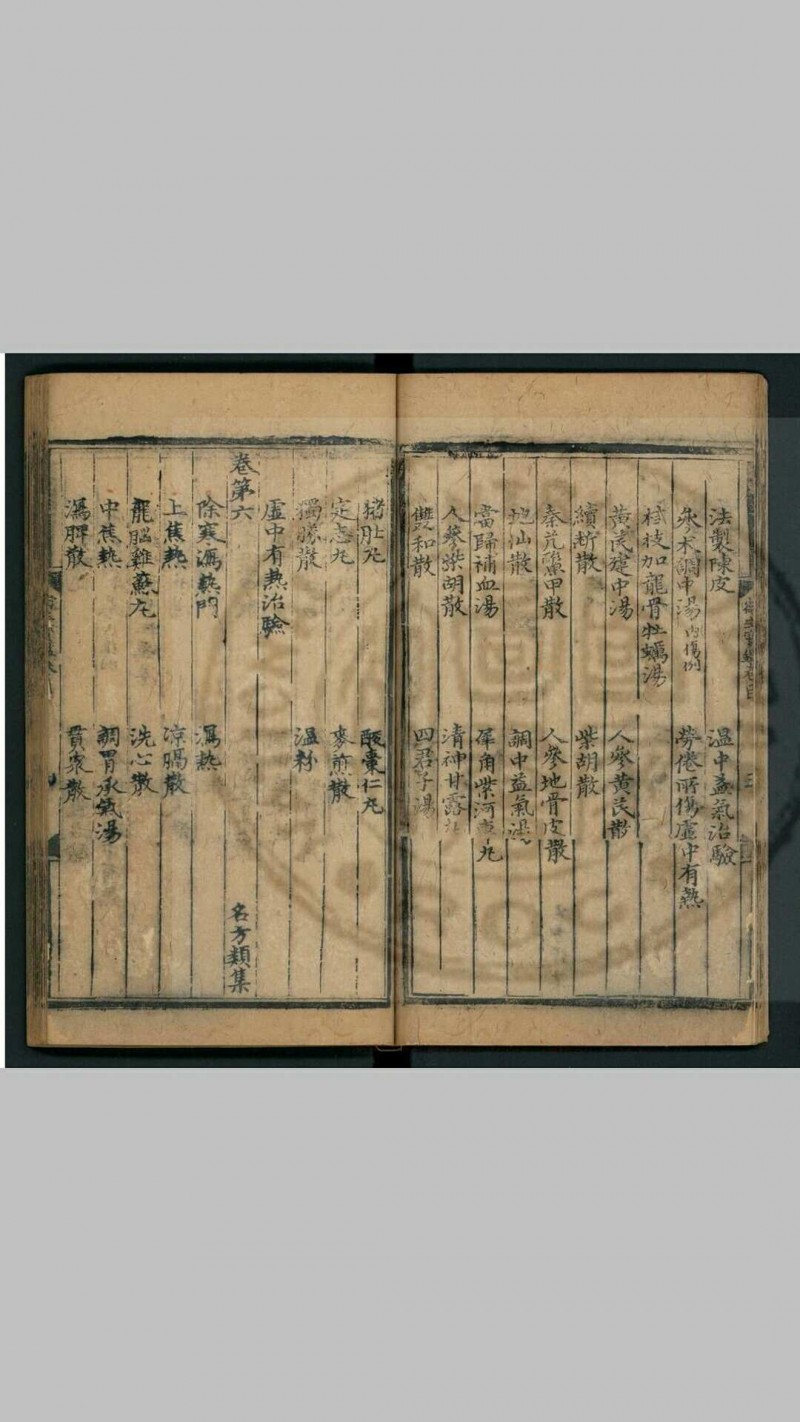 法製陳皮　溫中益氣治驗
參术調中湯內傷例　勞倦所傷虛中有熱
桂枝加龍骨牡蠣湯
黃芪建中湯　人參黃芪散
續斷散　柴胡散
秦艽鱉甲散　人參地骨皮散
地仙散　調中益氣湯
當歸補血湯　犀角紫河車丸
人參柴胡散　清神甘露
雙和散　四君子湯
猪肚丸　酸棗仁丸
定志丸　麥煎散
獨勝散　溫粉
虛中有熱治驗
卷第六　名方類集
除寒瀉熱門　瀉熱
上焦熱　涼膈散
龍腦雞蘇丸　洗心散
中焦熱　調胃承氣湯
瀉脾散　貫衆散